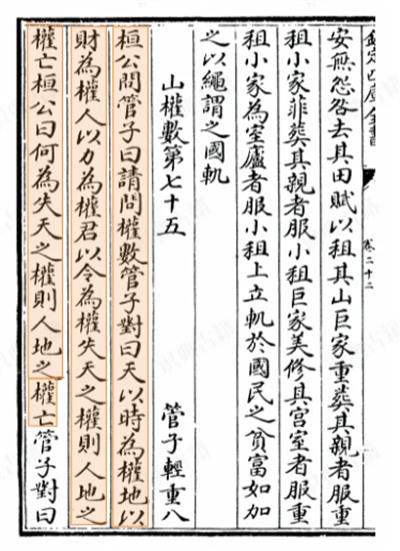 欽定四庫全書 卷二十二
安無怨咎去其田賦以租其山巨家重葬其親者服重
租小家菲葬其親者服小租巨家美修其宮室者服重
租小家為室廬者服小租上立軌於國民之貧富如加
之以繩謂之國軌
山權數第七十五 管子輕重八
桓公問管子曰請問權數管子對曰天以時為權地以
財為權人以力為權君以令為權失天之權則人地之
權亡桓公曰何為失天之權則人地之權亡管子對曰